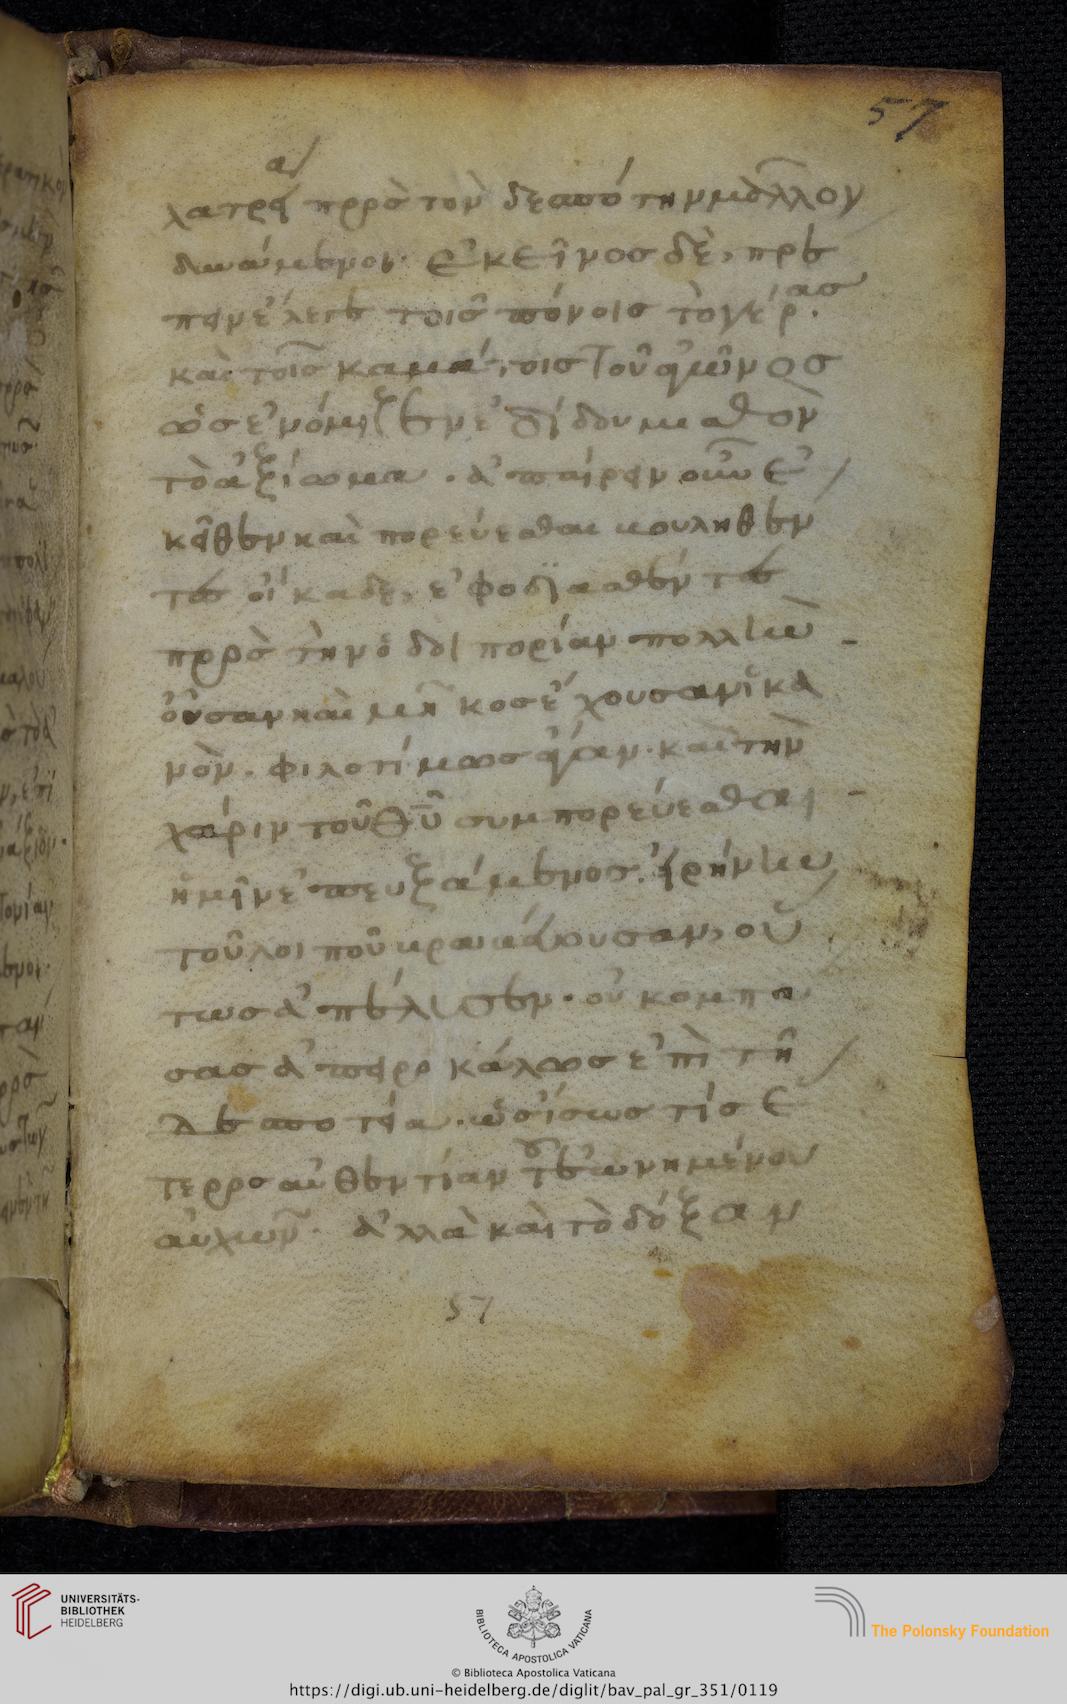 57
λατρεία πρὸς τὸν δεσπότην μᾶλλον
δυνάμενοι· ἐκεῖνος δὲ,
τοῖς πόνοις τὸ γέρας·
καὶ τοῖς καμάτοις τοῦ ἀγῶνος
ὡς ἐνόμιζεν ἐδίδου μαθὼν
τὸ ἀξίωμα · ἀπαίρειν οὖν ἐ
κεῖθεν καὶ πορεύεσθαι βουληθέν
τες οἴκαδε, ἐφοδιασθέντες
πρὸς τὴν ὁδοιπορίαν πολλὴν
οὖσαν καὶ μῆκος ἔχουσαν ἱκα
νὸν· φιλοτίμως ἄγαν· καὶ τὴν
χάριν τοῦ θῦ συμπορεύεσθαι
ἡμῖν ἐπευξάμενος· εἰρήνην
τοῦ λοιποῦ οὖ
τως ἀπέλυσεν· οὐ κομπά
σας ἐπὶ τῆ
δεσποτεία· ὡς ἴσως τίς ἕ
τερος αὐθεντίαν
αὐχῶν· ἀλλὰ καὶ τὸ δόξαν
57
UNIVERSITÄTS-
BIBLIOTHEK
HEIDELBERG
BIBLIOTECA APOSTOLICA VATICANA
The Polonsky Foundation
© Biblioteca Apostolica Vaticana
https://digi.ub.uni-heidelberg.de/diglit/bav_pal_gr_351/0119